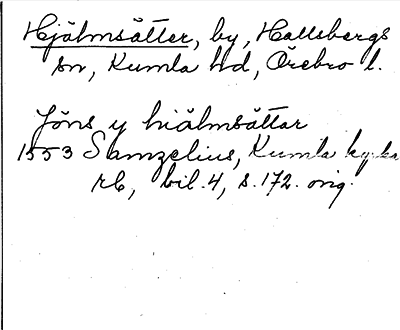 Hjälmsätter, by, Hallsbergs
sn, Kumla hd, Örebro l.
Jöns y hiälmsättar
1553 Samzelius, Kumla kyrka
rb, bil. 4, s. 172. orig.